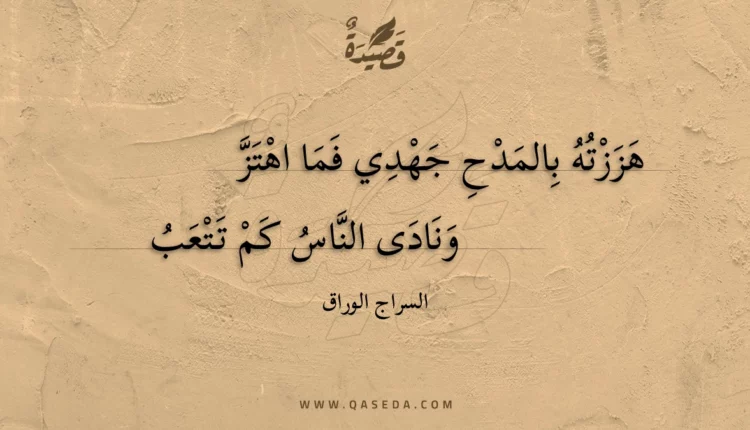 قَصِيدَةٌ
هَزَزْتُهُ بِالمَدْحِ جَهْدِي فَمَا اهْتَزَّ
وَنَادَى النَّاسُ كَمْ تَتْعَبُ
السراج الوراق
WWW.QASEDA.COM